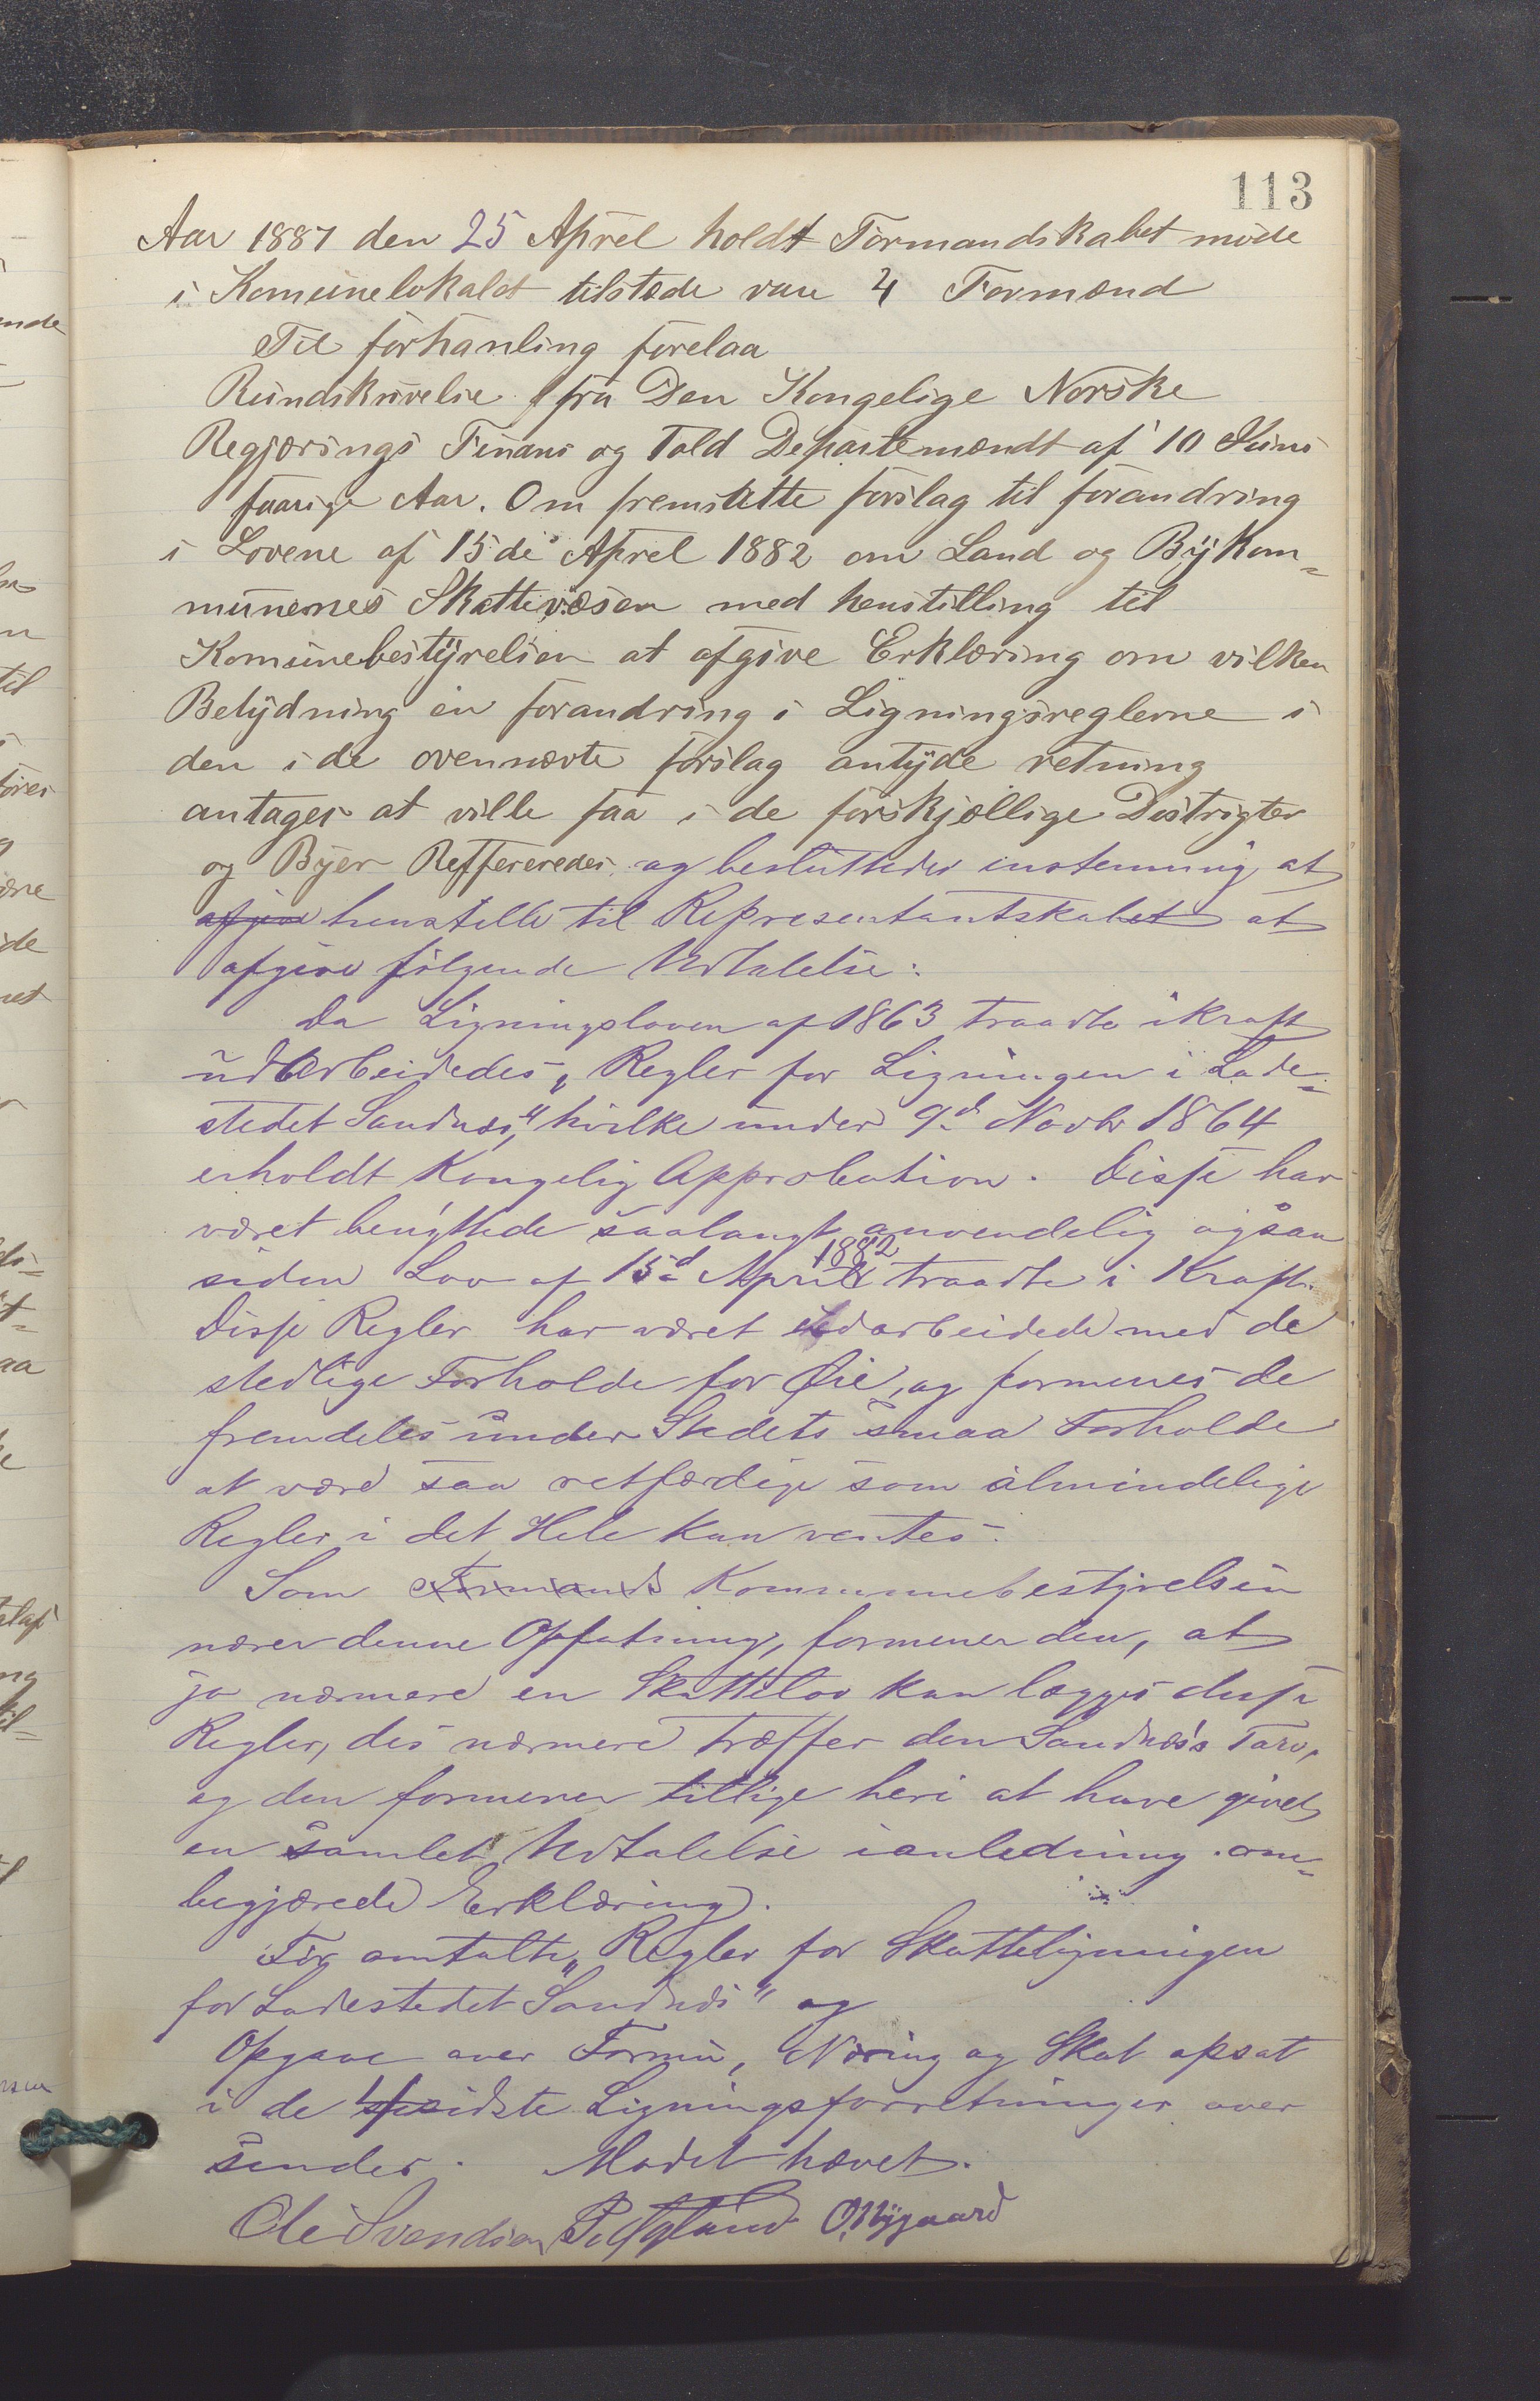 113
Aar 1887 den 25 Aprel holdt Formandskabet møde
i Komunelokalet tilstæde var 4 Formænd
Til forhanling forelaa
Rundskrivelse fra Den Kongelige Norske
Regjærings Finans og Told Departemændt af 10 Juni
foarige Aar. Om fremsatte forslag til forandring
i Lovene af 15de Aprel 1882 om Land og Bykom=
munernes Skattevæsen med henstilling til
Komunebestyrelsen at afgive Erklæring om vilken
Betydning en forandring i Ligningsreglerne i
den i de ovennævte forslag antyde retning
antages at ville faa i de forskjællige Distrigter
og Byer Reffereredes. og besluttedes enstemmig at
afgive henstille til Representantskabet at
afgive følgende Udtalelse:
Da Ligningsloven af 1863 traadte i kraft
udarbeidedes „Regler for Ligningen i Lade=
stedet Sandnæs", hvilke under 9d Novbr 1864
erholdt Kongelig Approbation. Disse har
været benyttede saalangt anvendelig ogsaa
siden Lov af 15d April 1882 traadte i Kraft.
Disse Regler har været udarbeidede med de
stedlige Forholde for Øie, og formenes de
fremdeles under Stedets smaa Forholde
at være saa retfærdige som almindelige
Regler i det Hele kan ventes.
Som Formands Kommunebestyrelsen
nærer denne Opfatning, formener den, at
jo nærmere en Skattelov kan lægges disse
Regler, des nærmere træffer den Sandnæs's Tarv,
og den formener tillige heri at have givet
en samlet Udtalelse i anledning om=
begjærede Erklæring.
Før omtalte „Regler for Skatteligningen
for Ladestedet Sandnæs" og
Opgave over Formue, Næring og Skat opsat
i de sidste Ligningsforretninger over
sendes. Mødet hævet.
Ole Svendsen O. Nygaard